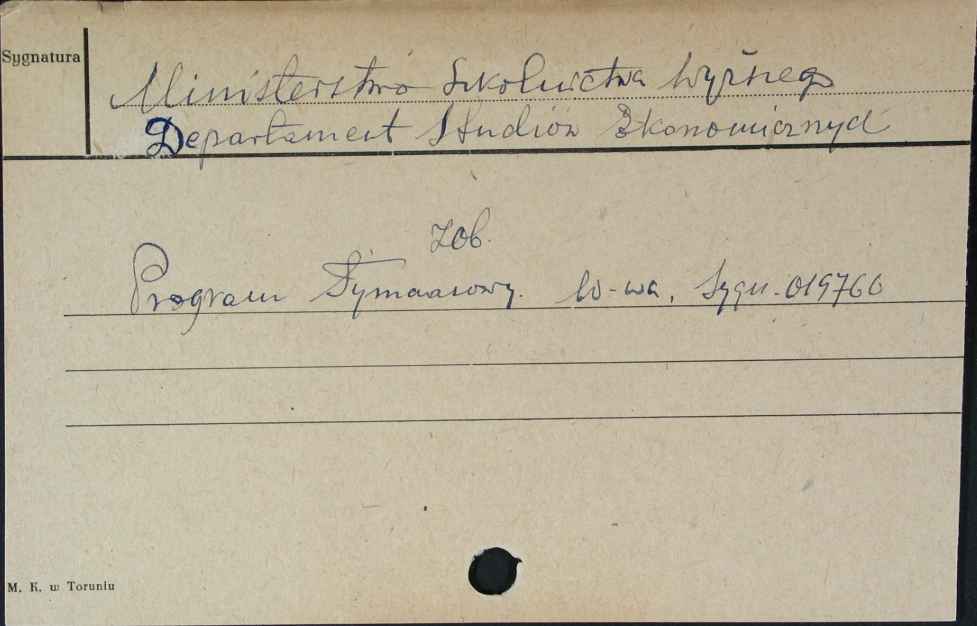 Sygnatura
Ministerstwo Szkolnictwa Wyższego
Departament Studiów Ekonomicznych
zob.
Program Tymczasowy. W-wa, Sygn. 019760
M. K. w Toruniu